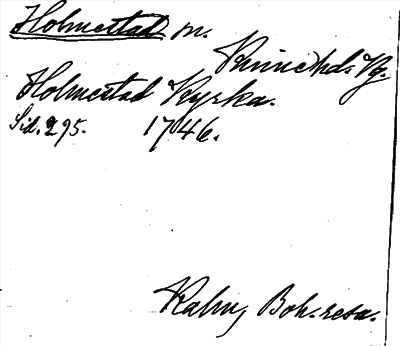 Holmestad sn.
Kinnehd. Vg.
Holmestad Kyrka.
Sid. 295. 1746.
Kalm, Boh. resa.